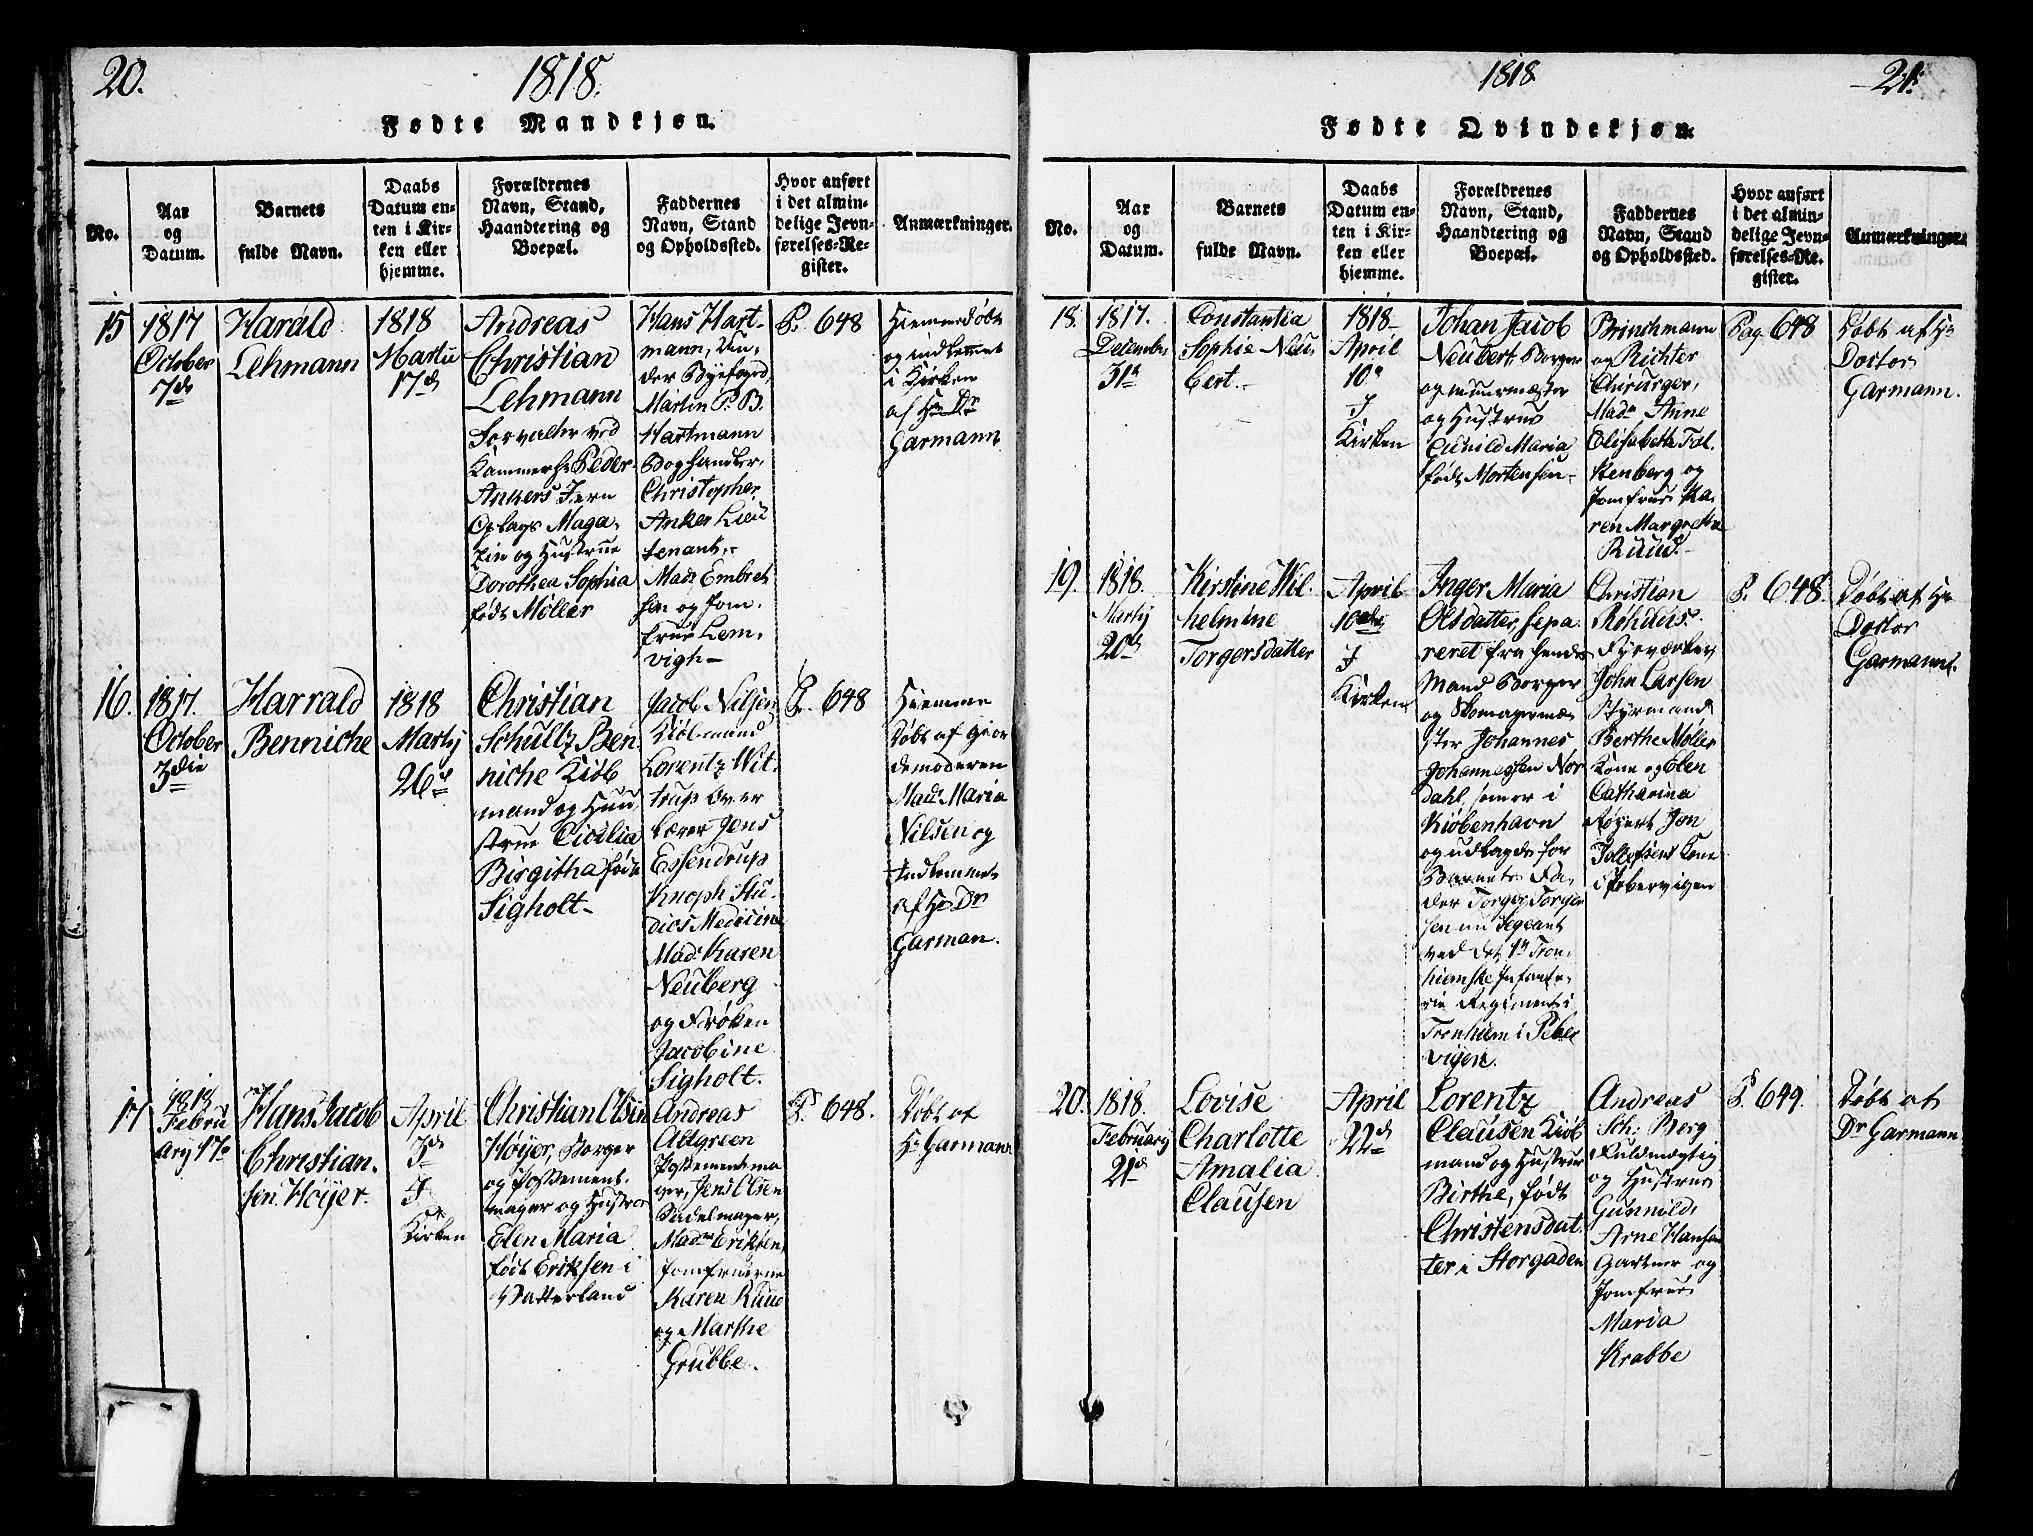 20.
1818.
Fødte Mandkjøn.
No.
Aar
og
Datum.
Barnets
fulde Navn.
Daabs
Datum en-
ten i Kir-
ken eller
hjemme.
Forældrenes
Navn, Stand,
Haandtering og
Boepæl.
Faddernes
Navn, Stand
og Opholdssted.
Hvor anført
i det almin-
delige Jevn-
førelses-Re-
gister.
Anmærkninger.
15
1817
October
7de
Harald
Lehmann
1818
Martii
17de
Andreas
Christian
Lehmann
Forvalter ved
Kammerhr Peder
Ankers Jern
Oplags Maga,
zin og Hustrue
Dorothea Sophia
født Møller
Hans Hart-
mann, Un,
der Byefoged,
Martin P. B.
Hartmann
Boghandler,
Christopher
Anker Lieu
tenant,-
Made Embret
sen og Jom,
frue Lem,
vigh-
P. 648
Hiemmedøbt
og indkommet
i Kirken
af Hr Dr
Garmann
16.
1817.
October
3die
Harrald
Benniche
1818
Martij
26de
Christian
Schultz Ben
niche Kiøb
mand og Huu
strue Cicilia
Birgitha født
Sigholt-
Jacob Nilsen
Kiøbmand
Lorentz Wit-
trup Over
Lærer Jens
Essendrup
Knoph Stu-
dios Medicine
Made Karen
Neuberg
og Frøken
Jacobine
Sigholt.
P. 648
Hiemme
døbt af Gior
demoderen
Made Maria
Nilsen og
Indkommet
af Hr Dr
Garman.
17
1818
Febru
ary 17e
Hans Jacob
Christian-
sen Høijer.
April
3de
I
Kirken
Christian Olsen
Høijer, Borger
og Possement-
mager og Hustrue
Elen Maria
født Eriksen i
Vatterland
Andreas
Altgreen
Possementma
ger, Jens Olsen
Sadelmager,
Madme Eriksen,
Jomfruerne
Karen Ruud
og Marthe
Grubbe.
P. 648.
Døbt af
Hr Garmann
1818
21.
Fødte Qvindekjøn.
No.
Aar
og
Datum.
Barnets
fulde Navn.
Daabs
Datum en-
ten i Kir-
ken eller
hjemme.
Forældrenes
Navn, Stand,
Haandtering og
Boepæl.
Faddernes
Navn, Stand
og Opholdssted.
Hvor anført
i det almin-
delige Jevn-
førelses-Re-
gister.
Anmærkninger.
18.
1817.
December
31te
Constantia
Sophie Neu,
bert.-
1818-
April
10e
I
Kirken
Johan Jacob
Neubert, Borger
og Muurmester
og Hustrue
Gunild Maria
født Mortensen-
Brinchmann
og Richter
Chirurger,
Made Anne
Elisabeth Fal
kenberg og
Jomfrue Ka-
ren Margrethe
Ruud.-
Pag. 648
Døbt af Hr
Doctor
Garmann.
19.
1818.
Martij
20de
Kirstine Wil.
helmine
Torgersdatter
April
10ende
I
Kirken
Inger Maria
Olsdatter, sepa.
reret fra hendes
Mand Borger
og Skomagermæ
ster Johannes
Johannessen Nor
dahl, som er i
Kiøbenhavn
og udlagde for
Barnets Fa,
der Torger Torger
sen nu Segeant
ved det 1te Tron-
hiemske Infante-
rie Regiment i
Tronhiem i Peber
vigen.
Christian
Fyrværker
John Larsen
Styrmand
Berthe Møller
Kone og Elen
Catharina
Jon
Kone
i Pebervigen
P. 648.
Døbt af Hr
Doctor
Garmann.
20.
1818.
February
21de
Lovise
Charlotte
Amalia
Clausen
April
22de
Lorentz
Clausen Kiøb
mand og Hustrue
Birthe, født
Christensdat.
ter i Storgaden
Andreas
Sch: Berg
Fuldmægtig
og Hustrue
Gunnild,
Arne Hansen
Gartner og
Jomfrue
Maria
Krabbe
P. 649.
Døbt af
Dr Garmann